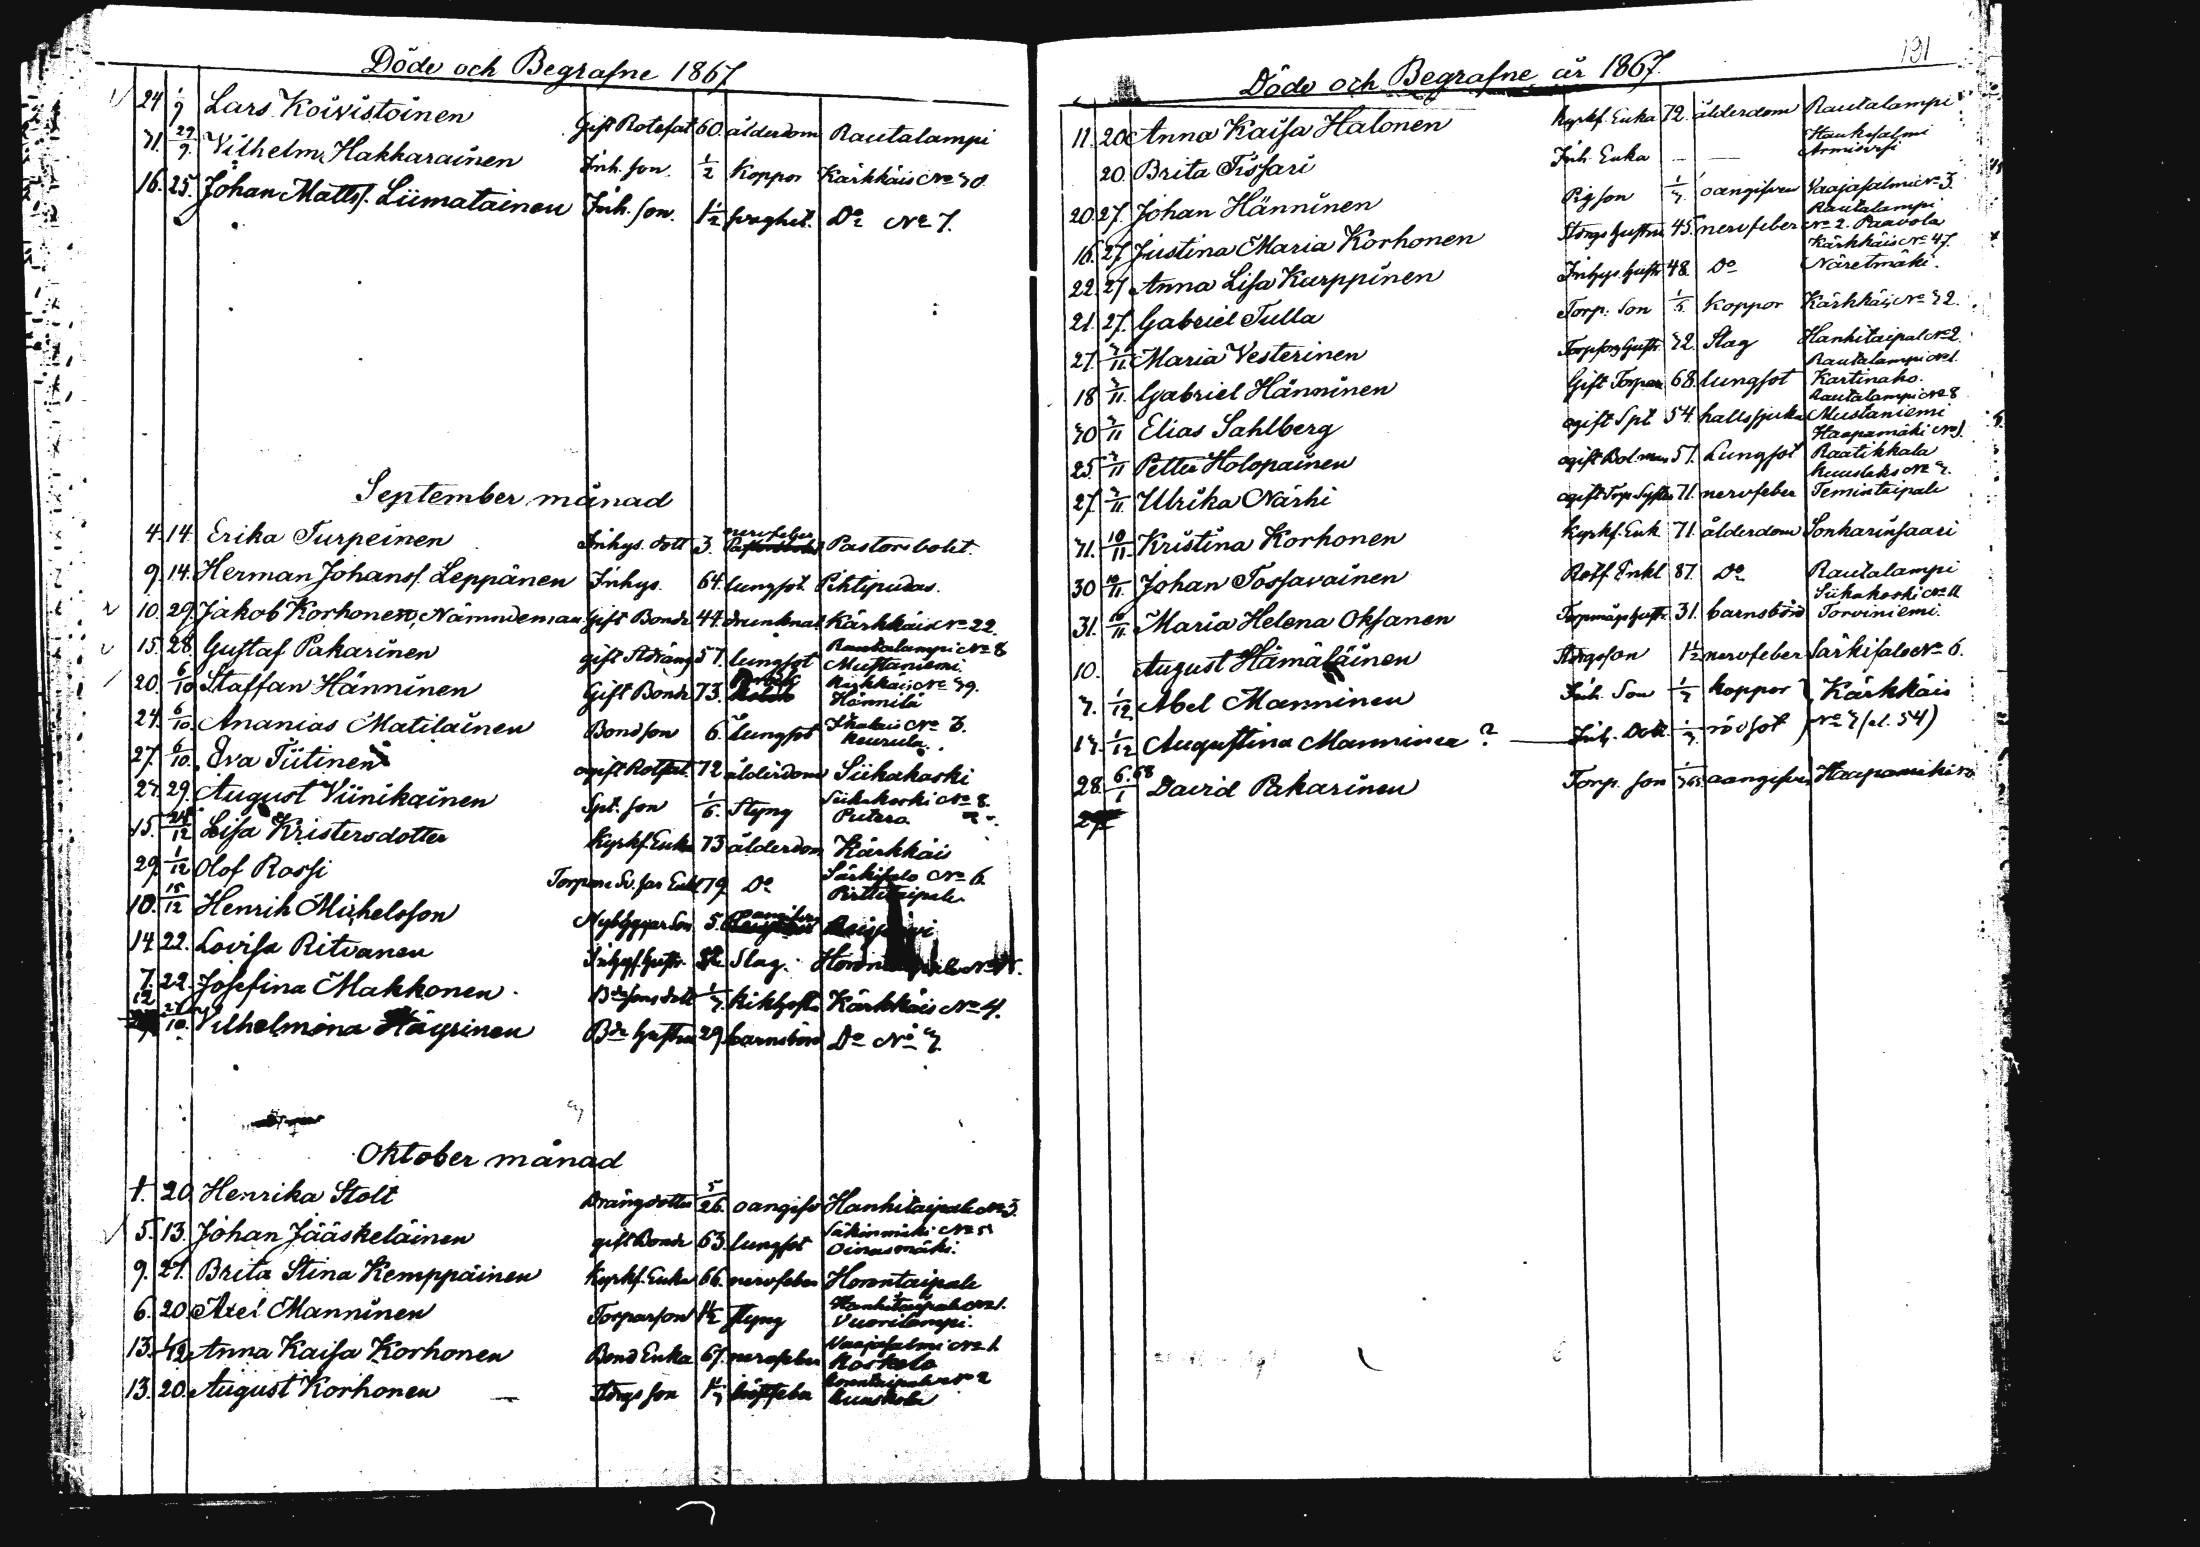 Döde och Begrafne 1867
24 1/9 Lars Koivistoinen Gift Rotefat 60. ålderdom Rautalampi
31. 29/9. Vilhelm Hakkarainen Inh. son. 1/2 Koppor Kärkkäis No 30
16. 25. Johan Matts. Liimatainen Inh. son. 1 1/2 svaghet. Do No 7.
September månad
4. 14. Erika Turpeinen Inhys. dott 3. nervfeber Pastorsbolet.
9. 14. Herman Johans. Leppänen Inhys. 64. lungsot Pihtipudas.
10. 29. Jakob Korhonen, Nämndeman Gift Bonde 44. drunknat Kärkkäis No 22.
15. 28 Gustaf Pakarinen gift 57. lungsot Rautalampi No 8 Mustaniemi.
20. 6/10 Staffan Hänninen Gift Bonde 73. Kärkkäis No 39. Hännilä
24. 6/10 Ananias Matilainen Bondson 6. Lungsot
27. 6/10. Eva Tiitinen ogift Rotfat. 72 ålderdom Siikakoski
27. 29. August Viinikainen Spt. son 1/6. Styng Siikakoski No 8. Putero
15. /12 Lisa Kristersdotter Kyrkf. Enka 73 ålderdom Kärkkäis
29. 1/12 Olof Rossi Enkl 79 Do Särkisalo No 6. Pirttitaipale
10. 15/12 Henrik Michelsson Nybyggar Son 5.
14 22. Lovisa Ritvanen Inhys. hustr. Slag.
7. 22. Josefina Makkonen. Bdesons dott 1/3. kikhosta Kärkkäis No 4.
12 27/10. Vilhelmina Häyrinen Bde hustru 29 barnsbörd Do No 3.
Oktober månad
1. 20 Henrika Stolt Drängdotter 5/26. oangifv Hankitaipale No 3.
5. 13. Johan Jääskeläinen gift Bonde 63. lungsot Oinasmäki.
9. 27. Brita Stina Kemppäinen Kyrkf. Enka 66. nervfeber Horontaipale
6. 20. Axel Manninen Torparson 1 1/2 styng Hankitaipale No 1. Vuorilampi.
13. Anna Kaisa Korhonen Bond Enka 67. nervfeber Vaajasalmi No 1. Koskelo
13. 20. August Korhonen son
Döde och Begrafne år 1867.
191
11. 20. Anna Kaisa Halonen Kyrkf. Enka 72. ålderdom Rautalampi
20. Brita Tissari Inh. Enka Hankasalmi Armisvesi
20. 27. Johan Hänninen Pigson 1/3. oangifven Vaajasalmi No 3.
16. 27. Justina Maria Korhonen hustru 45. nervfeber Rautalampi No 2. Paavola
22. 27. Anna Lisa Kurppinen Inhys. hustr 48. Do Kärkkäis No 47. Näretmäki.
21. 27. Gabriel Tulla Torp. Son Koppor Kärkkäis No 32.
27. 3/11. Maria Vesterinen 32. Slag Hankitaipale No 2.
18 3/11. Gabriel Hänninen Gift Torpar 68. lungsot Rautalampi No 1. Kartinaho.
30 3/11 Elias Sahlberg ogift Spt 54. Rautalampi No 8 Mustaniemi
25. 3/11 Petter Holopainen ogift 57. Lungsot Haapamäki No 1. Raatikkala
27. 3/11. Ulrika Närhi 71. nervfeber Temintaipale
31. 10/11. Kristina Korhonen Kyrkf. Enk 71. ålderdom Sonkarinsaari
30 10/11. Johan Tossavainen Rotf. Enkl 87. Do Rautalampi
31. 10/11. Maria Helena Oksanen hustr. 31. barnsbörd Siikakoski No 11 Torviniemi.
10. August Hämäläinen son 1 1/2 nervfeber Särkisalo No 6.
3. 1/12 Abel Manninen Inh. Son 1/3 koppor } Kärkkäis
13. 1/12 Augustina Manninen? Inh. Dott. 1/3. rödsot } No 3 (el. 54)
28. 6.68/1 David Pakarinen Torp. son oangifven Haapamäki